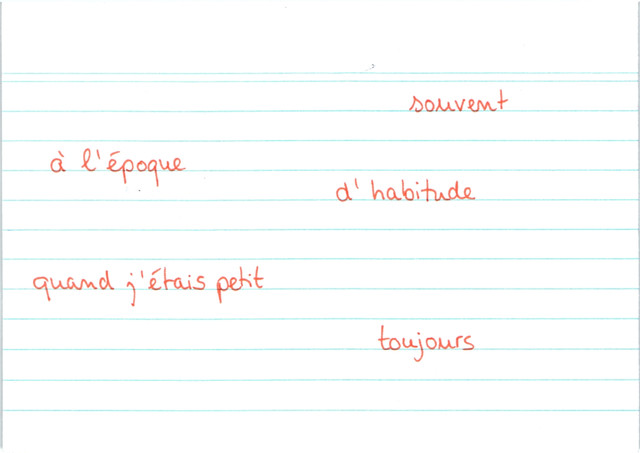 souvent
à l'époque
d'habitude
quand j'étais petit
toujours